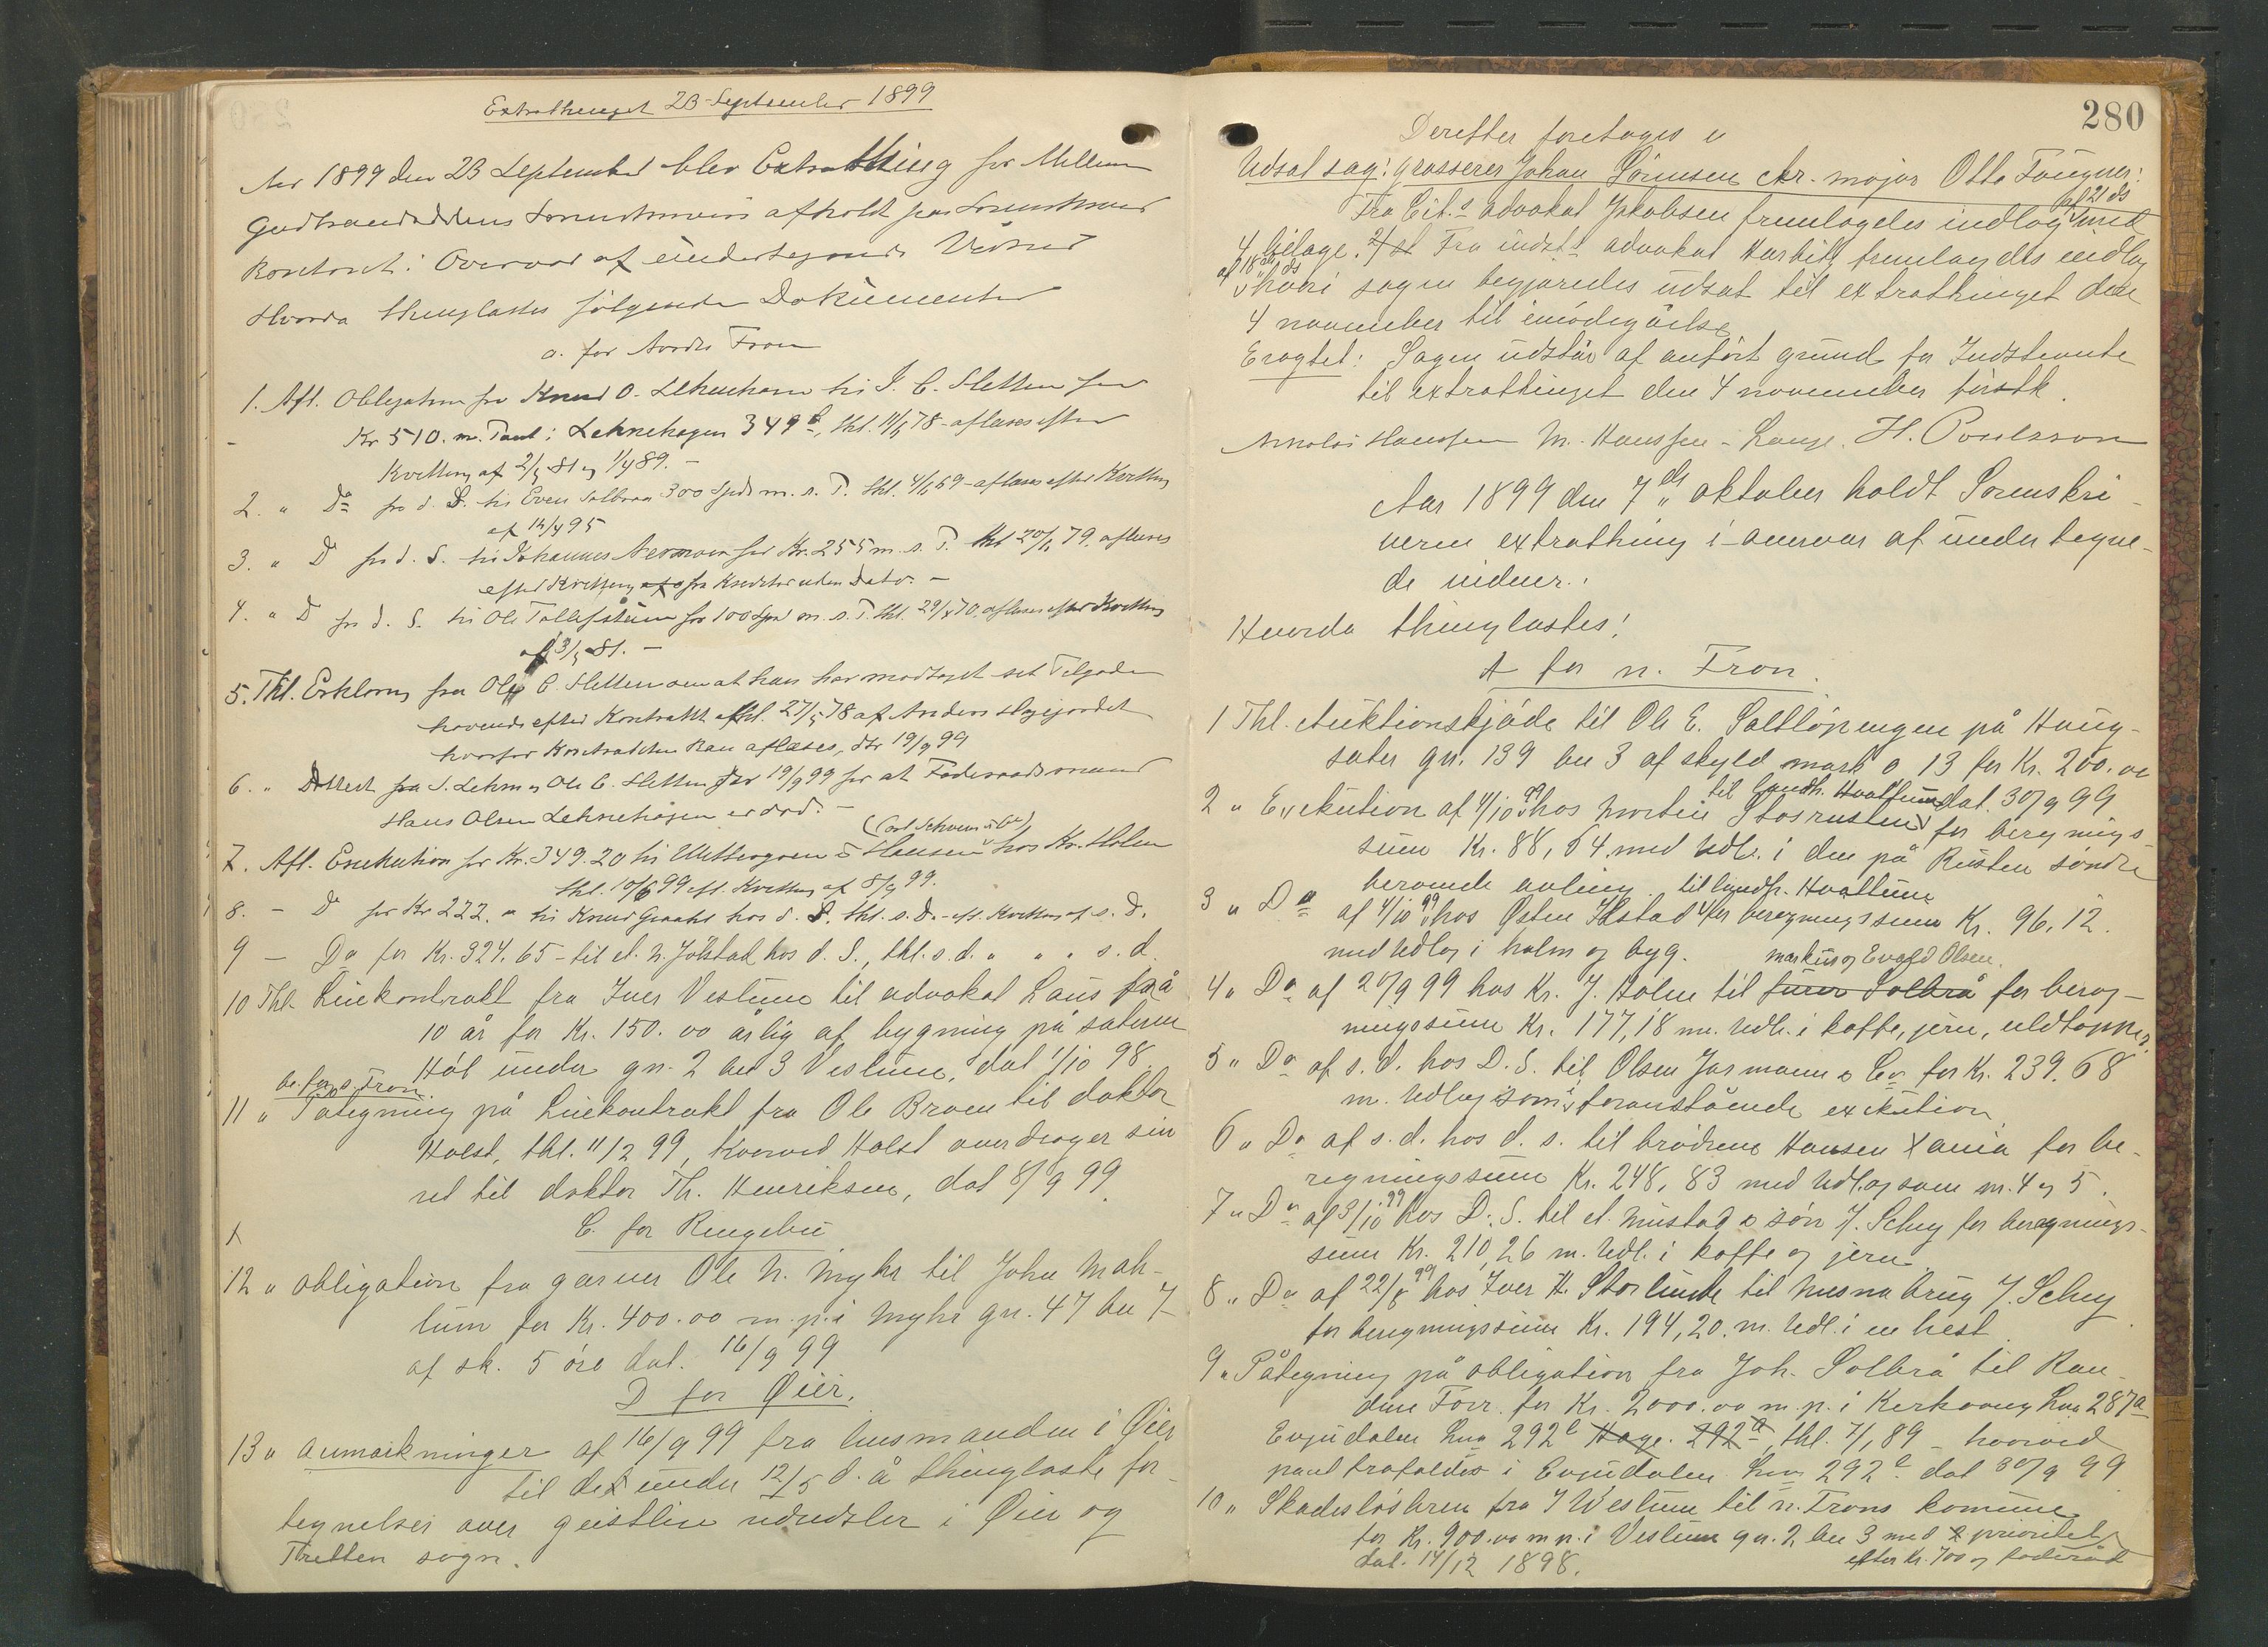 Extrathinget 23 September 1899
Aar 1899 den 23 September blev Extrathing for Mellem
Gudbrandsdalens Sorenskriveri afholdt paa Sorenskriver
kontoret i Overvær af undertegnede Vidner
Hvorda thinglæstes følgende Dokumenter
a. for Nordre Fron
1. Afl. Obligation fra Knud O. Lehnehagen til I. C. Sletten for
Kr 510. m. Pant i Lehnehagen 349 b, thl. 11/5 78 - aflæses efter
Kvittering af 2/5 81 og 1/4 89. -
2. " Do fra d. S. til Even Solbraa 300 Spd m. s. P. thl. 4/6 69 - aflæses efter Kvittering
af 12/4 95
3. " D fra d. S. til Johannes for Kr. 255 m. s. P. thl 20/6 79. aflæses
efter Kvittering fra Kreditor uden Dato. -
4. " D fra d. S. til Ole Tollefstuen for 100 Spd m. s. P. thl. 29/4 70. aflæses efter Kvittering
af 3/5 81. -
5. Thl. Erklæring fra Ole C. Sletten om at han har modtaget sit Tilgode
havende efter Kontrakt thl. 27/5 78 af Anders Hagejordet
hvorfor Kontrakten kan aflæses, dtr 19/9 99
6. " Attest fra S. Lehm og Ole C. Sletten dtr 19/9 99 for at Føderaadsmand
Hans Olsen Lehnehagen er død. -
(Carl Schwensen)
7. Afl. Exekution for Kr. 349.20 til Wettergreen & Hansen hos Kr. Holm
thl. 10/6 99 eft. Kvittering af 8/9 99.
8. - D for Kr 222. " til Knud Graaht hos d. S. thl. s. D. - eft. Kvittering af s. D.
9 - Do for Kr. 324.65 - til A. N. Jølstad hos d. S., thl. s. d. " " " s. d.
10 Thl. Leiekontrakt fra Iver Vestum til advokat Laus på
10 år for Kr. 150.00 årlig af bygning på sæteren
Høl under gn. 2 bn 3 Vestum, dat 1/10 98.
b. for s. Fron
11 " Påtegning på Leiekontrakt fra Ole Broen til doktor
Holst, thl. 11/2 99, hvorved Holst overdrager sin
ret til doktor Th. Henriksen, dat 8/9 99.
C. for Ringebu
X
12 " Obligation fra garver Ole N. Myhr til John Mæh-
lum for Kr. 400.00 m. p. i Myhr gn. 47 bn 7
af sk. 5 øre dat. 16/9 99
D for Øier.
13 " anmærkninger af 16/9 99 fra lensmanden i Øier
til det under 12/5 d. å thinglæste for-
tegnelser over geistlige ududsler i Øier og
Tretten sogn.
280
Derefter foretoges i
Udsat sag: grosserer Johan Sörensen ctr. major Otto Tougner:
af 21 ds
Fra Cit.s advokat Jakobsen fremlagdes indlæg med
4 bilage. Fra indst.s advokat Harbitz fremlagdes indlæg
af 18 ds
hvori sagen begjæredes udsat til extrathinget den
4 november til imødegåelse
Eragtet: Sagen udstår af anført grund for Indstevnte
til extrathinget den 4 november førstk.
Nikolai Hanssen M. Hanssen - Lange. H. Poulsson
Aar 1899 den 7de oktober holdt Sorenskri-
veren extrathing i overvær af undertegne-
de vidner.
Hvorda thinglæstes:
A for n. Fron.
1 Thl. Auktionsskjøde til Ole E. Saltløpengen på Haug-
sæter gn. 139 bn 3 af skyld mark 0 13 for Kr. 200.00
til landh. Hvattum dat. 30/9 99
2 " Exekution af 4/10 99 hos Morten Storrusten for beregnings-
sum Kr. 88,64 med Udl. i den på Rusten søndre
beroende avling. til landh. Hvattum
3 " Do af 4/10 99 hos Østen Ilstad for beregningssum Kr. 96,12.
med Udlæg i halm og byg. Markus og Evald Olsen.
4 " Do af 20/9 99 hos Kr. J. Holm til Iver Solbrå for bereg-
ningssum Kr. 177,18 m. Udl. i kaffe, jern, uldtæpper.
5 " Do af s. d. hos D. S. til Olsen Jarmann & Co for Kr. 239.68
m. Udlæg som i foranstående exekution.
6 " Do af s. d. hos d. s. til brødrene Hansen Xania for be-
regningssum Kr. 248,83 med Udlæg som n. 4 og 5.
7 " Do af 3/10 99 hos D. S. til A. Mustad & søn J. Schey for beregnings-
sum Kr. 210,26 m. Udl. i kaffe og jern
8 " Do af 22/8 99 hos Iver H. Storlunde til Mesna brug J. Schey
for beregningssum Kr. 194,20. m. Udl. i en hest.
9 " Påtegning på obligation fra Joh. Solbrå til Ran-
dine Forr. for Kr. 2000.00 m. p. i Kirkevang Lno 287a
Enjudalen Lno 292c Hage. 292a, thl. 7/1 89 - hvorved
pant frafaldes i Enjudalen Lno 292c dat 30/9 99
10 " Skadesløsbrev fra I Westum til n. Frons komune
for Kr. 900.00 m p. i Vestum gn. 2 bn 3 med prioritet
dat. 14/12 1898. efter Kr. 700 og føderåd